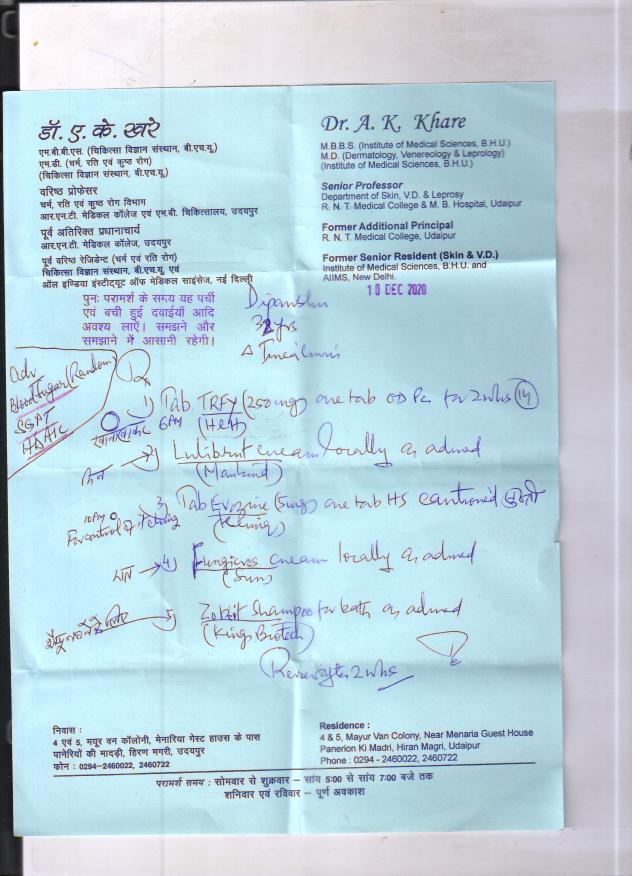 डॉ. ए. के. खरे
एम.बी.बी.एस. (चिकित्सा विज्ञान संस्थान, बी.एच.यू.)
एम.डी. (चर्म, रति एवं कुष्ठ रोग)
(चिकित्सा विज्ञान संस्थान, बी.एच.यू.)
वरिष्ठ प्रोफेसर
चर्म, रति एवं कुष्ठ रोग विभाग
आर.एन.टी. मेडिकल कॉलेज एवं एम.बी. चिकित्सालय, उदयपुर
पूर्व अतिरिक्त प्रधानाचार्य
आर.एन.टी. मेडिकल कॉलेज, उदयपुर
पूर्व वरिष्ठ रेजिडेन्ट (चर्म एवं रति रोग)
चिकित्सा विज्ञान संस्थान, बी.एच.यू. एवं
ऑल इण्डिया इंस्टीट्यूट ऑफ मेडिकल साइंसेज, नई दिल्ली
Dr. A. K. Khare
M.B.B.S. (Institute of Medical Sciences, B.H.U.)
M.D. (Dermatology, Venereology & Leprology)
(Institute of Medical Sciences, B.H.U.)
Senior Professor
Department of Skin, V.D. & Leprosy
R. N. T. Medical College & M. B. Hospital, Udaipur
Former Additional Principal
R. N. T. Medical College, Udaipur
Former Senior Resident (Skin & V.D.)
Institute of Medical Sciences, B.H.U. and
AIIMS, New Delhi.
10 DEC 2020
पुनः परामर्श के समय यह पर्ची
एवं बची हुई दवाईयाँ आदि
अवश्य लाएँ। समझने और
समझाने में आसानी रहेगी।
Dipanshu
32 yrs
Δ Tinea Cruris
Adv
Blood Sugar (Random)
SGPT
HbA1C
Rx
1) Tab. TRFY (250mg) one tab OD Pc for 2 whs (14)
6PM
2) cream locally as advised
(Mankind)
दिन
3) Tab (5mg) one tab HS cautioned
10PM
For control of itching
4) Fungicros cream locally as advised
(Sun)
5) Shampoo for bath as advised
(Kings Biotech)
Review after 2 whs
निवास :
4 एवं 5, मयूर वन कॉलोनी, मेनारिया गेस्ट हाउस के पास
पानेरियों की मादड़ी, हिरण मगरी, उदयपुर
फोन : 0294-2460022, 2460722
Residence :
4 & 5, Mayur Van Colony, Near Menaria Guest House
Panerion Ki Madri, Hiran Magri, Udaipur
Phone : 0294 - 2460022, 2460722
परामर्श समय : सोमवार से शुक्रवार – सांय 5:00 से सांय 7:00 बजे तक
शनिवार एवं रविवार – पूर्ण अवकाश